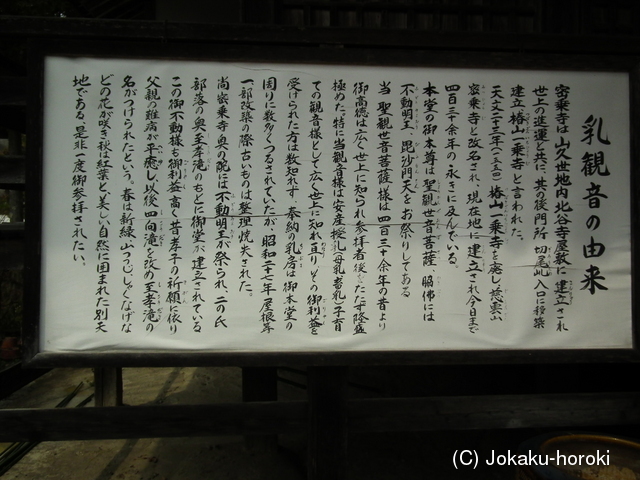 乳観音の由来
密乗寺は山久世地内北谷寺屋敷に建立され
世上進運と共に、其の後門所 切尾此入口に移築
建立椿山一乗寺と言われた。
天文二十三年(一五五四)椿山一乗寺を廃し、慈雲山
密乗寺と改名され、現在地に建立され今日まで
四百三十余年の永きに及んでいる。
本堂の御本尊は聖観世音菩薩 脇佛には
不動明王、毘沙門天をお祭りしてある
当 聖観世音菩薩様は四百三十余年の昔より
御高徳は広く世上に知られ参拝者後をたたず隆盛
極めた、特に当観音様は安産授乳(母乳)子育
ての観音様として広く世上に知れ亘り多くの御利益を
受けられた方は数知れず、奉納の乳房は御本堂の
周りに数多くつるされていたが、昭和二十七年屋根等
一部改築の際古いものは整理焼失された。
尚密乗寺奥の院は不動明王が祭られ、二の氏
部落の奥至孝滝のもとに御堂が、建立されている
この御不動様も御利益高く昔孝子の祈願に依り
父親の難病が平癒し以後四向滝を改め至孝滝の
名がつけられたという。春は新緑、山つつじ、しゃくなげな
どの花が咲き秋は紅葉と、美しい自然に囲まれた別天
地である、是非一度御参拝されたい。
(C) Jokaku-horoki